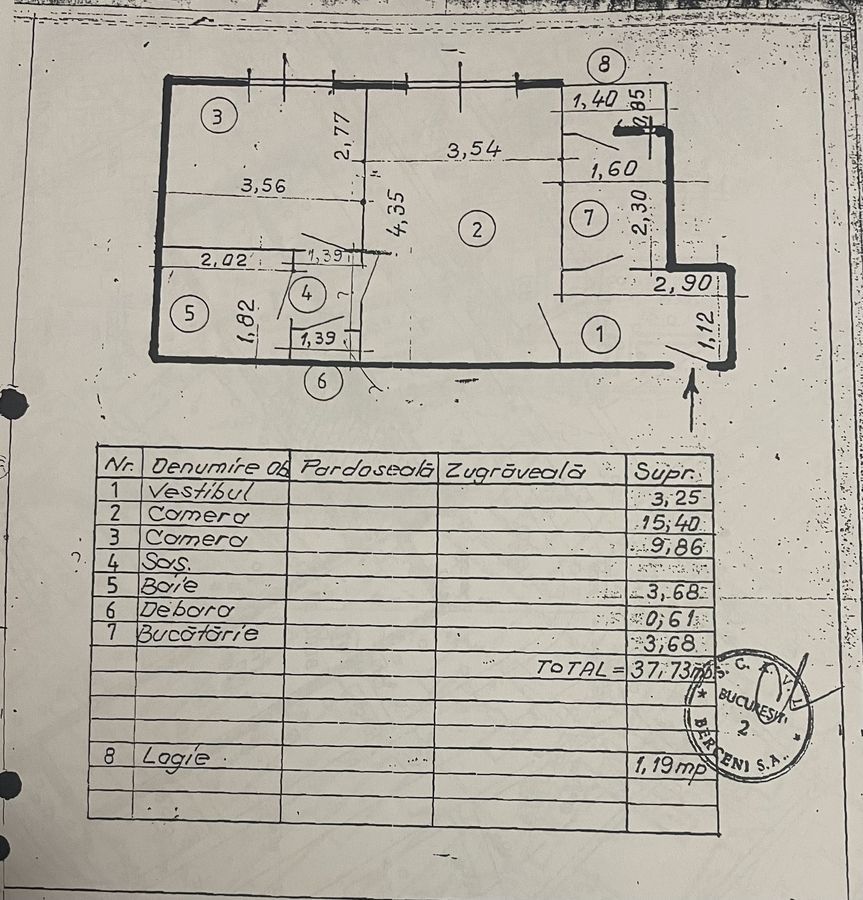 8
3
1,40
0,85
2,77
3,54
1,60
3,56
4,35
2
7
2,30
2,02
1,39
2,90
5
4
1,82
1
1,12
1,39
6
Nr. Denumire ob Pardoseală Zugrăveală Supr.
1 Vestibul 3,25
2 Camera 15,40
3 Camera 9,86
4 Sas.
5 Baie 3,68
6 Debara 0,61
7 Bucătărie 3,68
TOTAL = 37,73mp
8 Logie 1,19mp
BUCUREȘTI
2
BERCENI S.A.